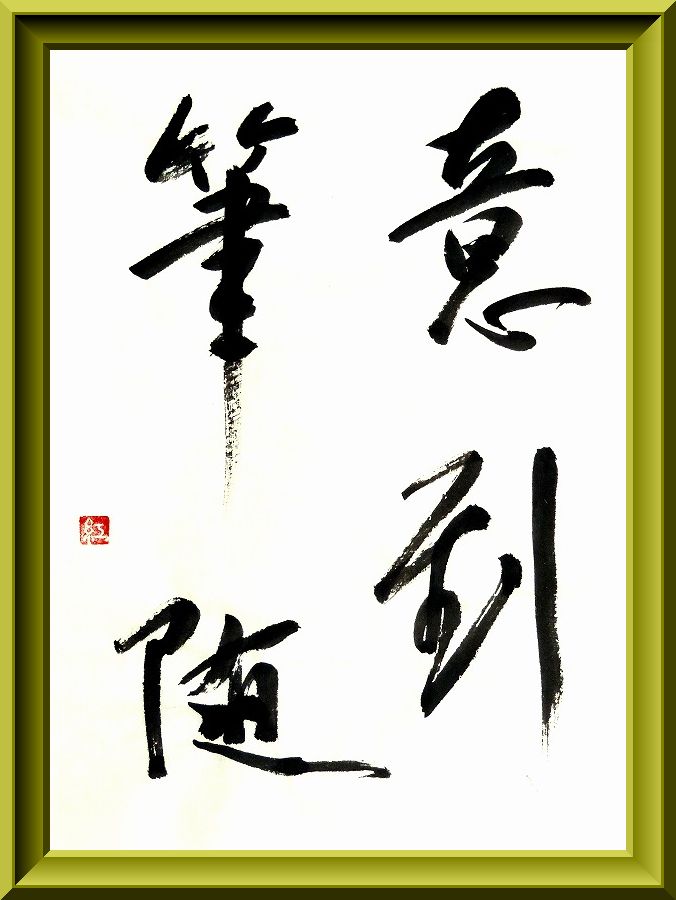 意到
筆随
紅